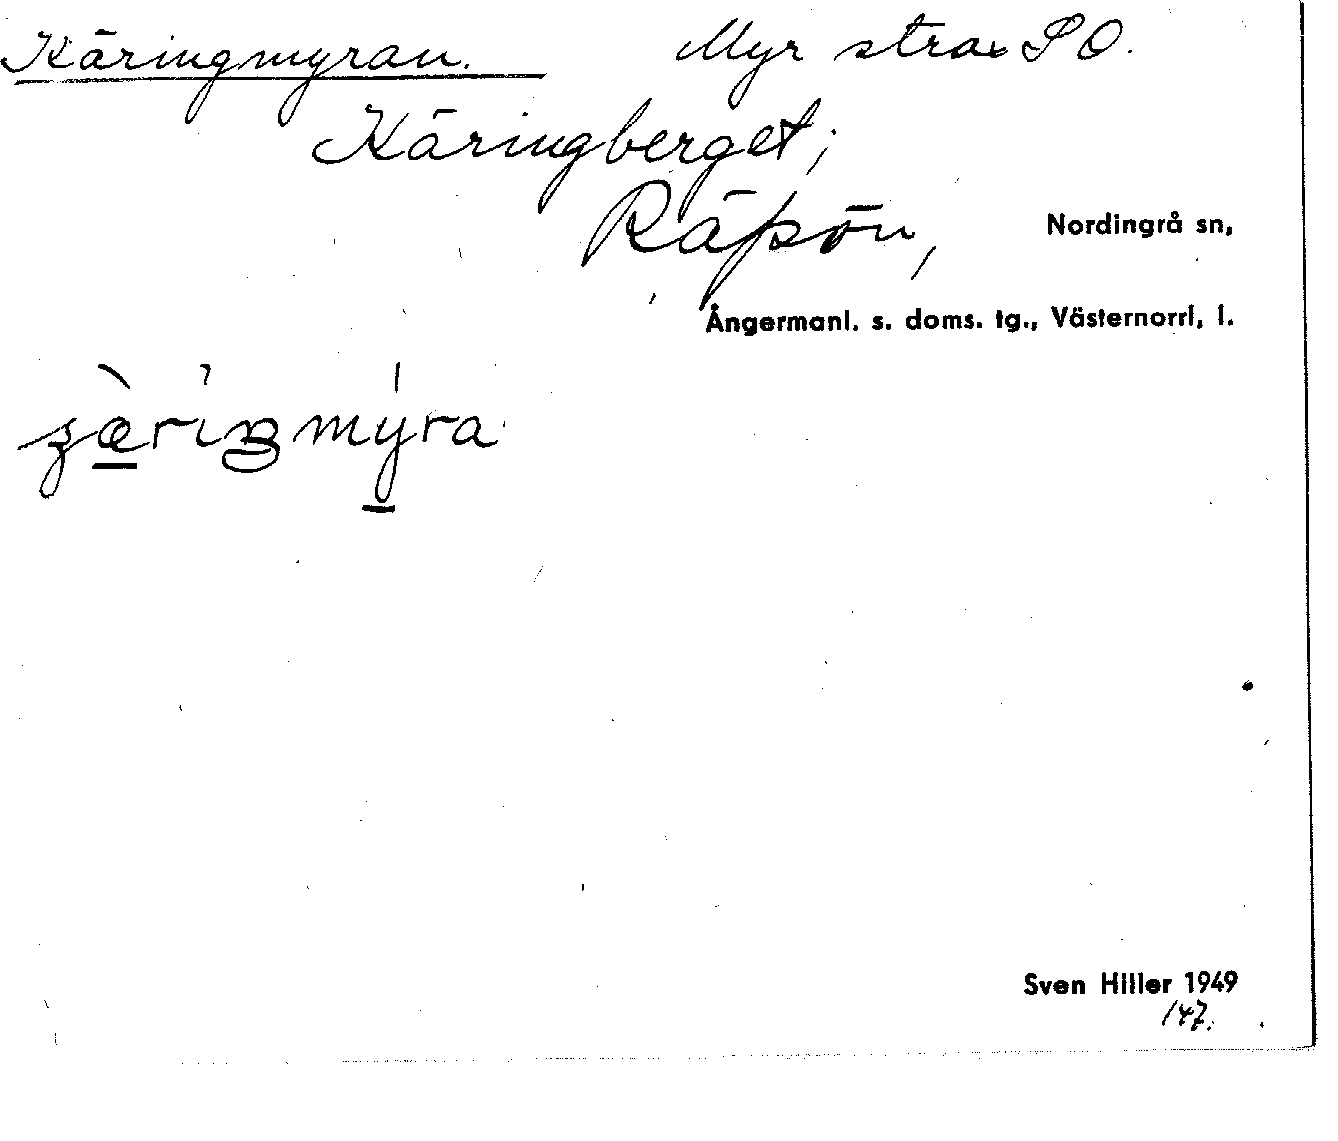 Käringmyran. Myr strax SO.
Käringberget;
Räpön, Nordingrå sn,
Ångermanl. s. doms. tg., Västernorrl, l.
Sven Hiller 1949
147.